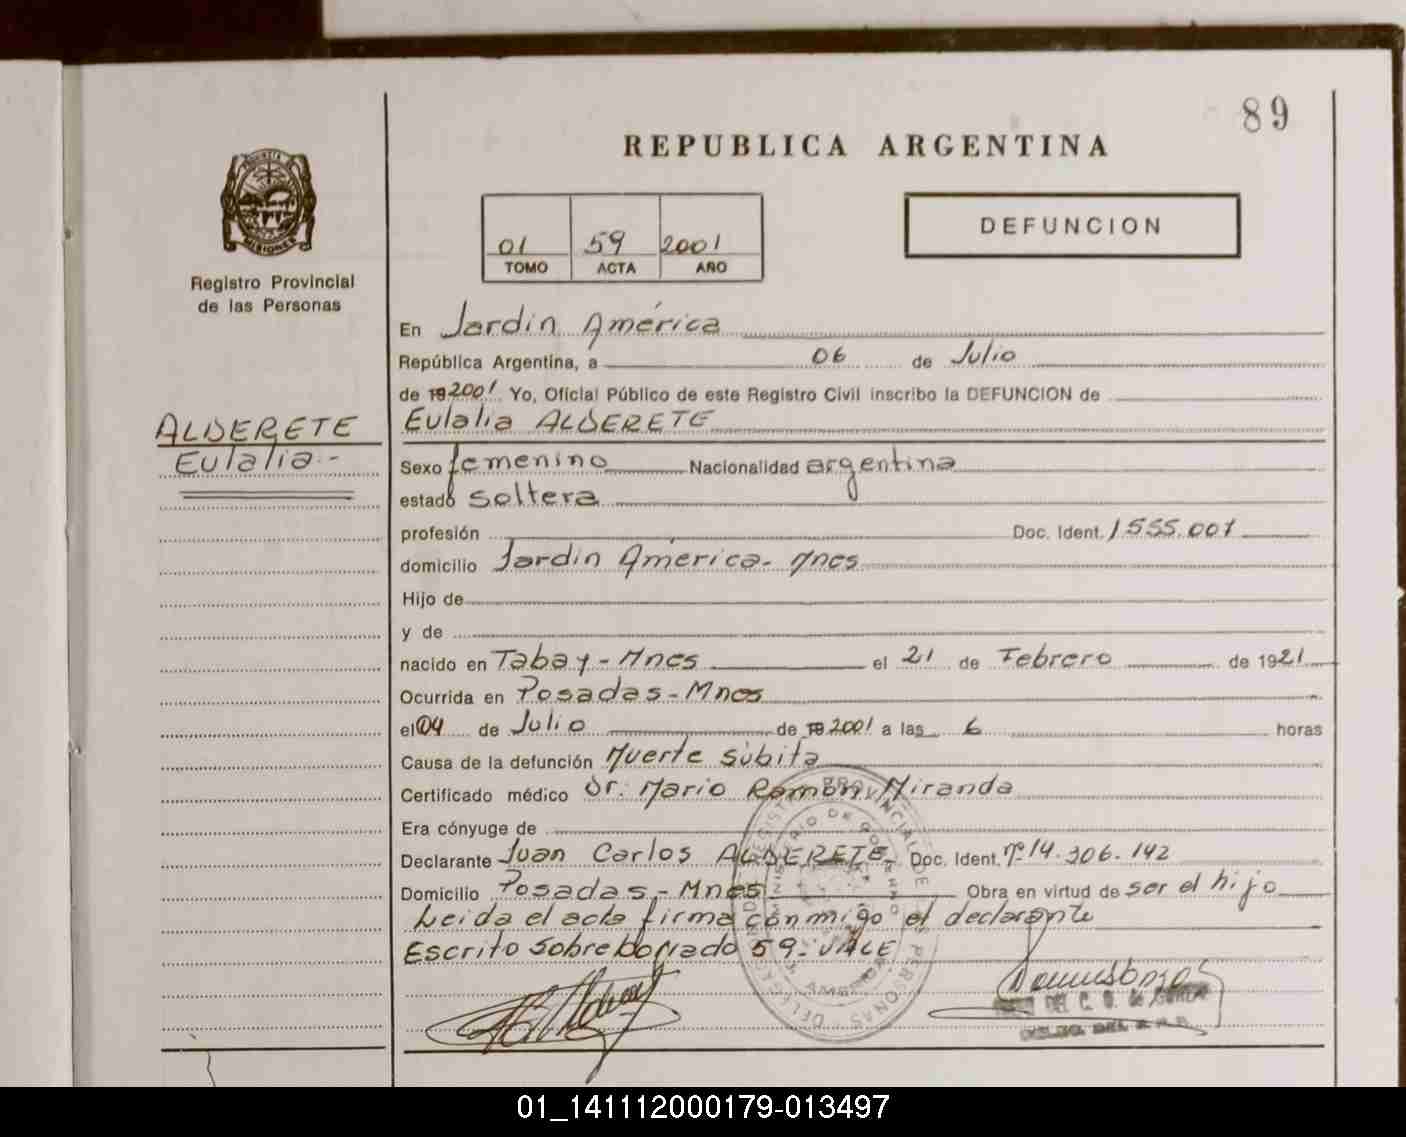 89
REPUBLICA ARGENTINA
MISIONES
Registro Provincial
de las Personas
01 59 2001
TOMO ACTA AÑO
DEFUNCION
En Jardin América
República Argentina, a 06 de Julio
de 19 2001 Yo, Oficial Público de este Registro Civil inscribo la DEFUNCION de
ALDERETE
Eulalia.-
Eulalia ALDERETE
Sexo femenino Nacionalidad argentina
estado soltera
profesión Doc. Ident. 1555.001
domicilio Jardin América- Mnes
Hijo de
y de
nacido en Tabay-Mnes el 21 de Febrero de 1921
Ocurrida en Posadas-Mnes
el 04 de Julio de 19 2001 a las 6 horas
Causa de la defunción Muerte súbita
Certificado médico Dr. Mario Ramón Miranda
Era cónyuge de
Declarante Juan Carlos ALDERETE Doc. Ident. nº 14.306.142
Domicilio Posadas-Mnes Obra en virtud de ser el hijo
Leida el acta firma conmigo el declarante
Escrito sobre borrado 59- VALE
01_141112000179-013497